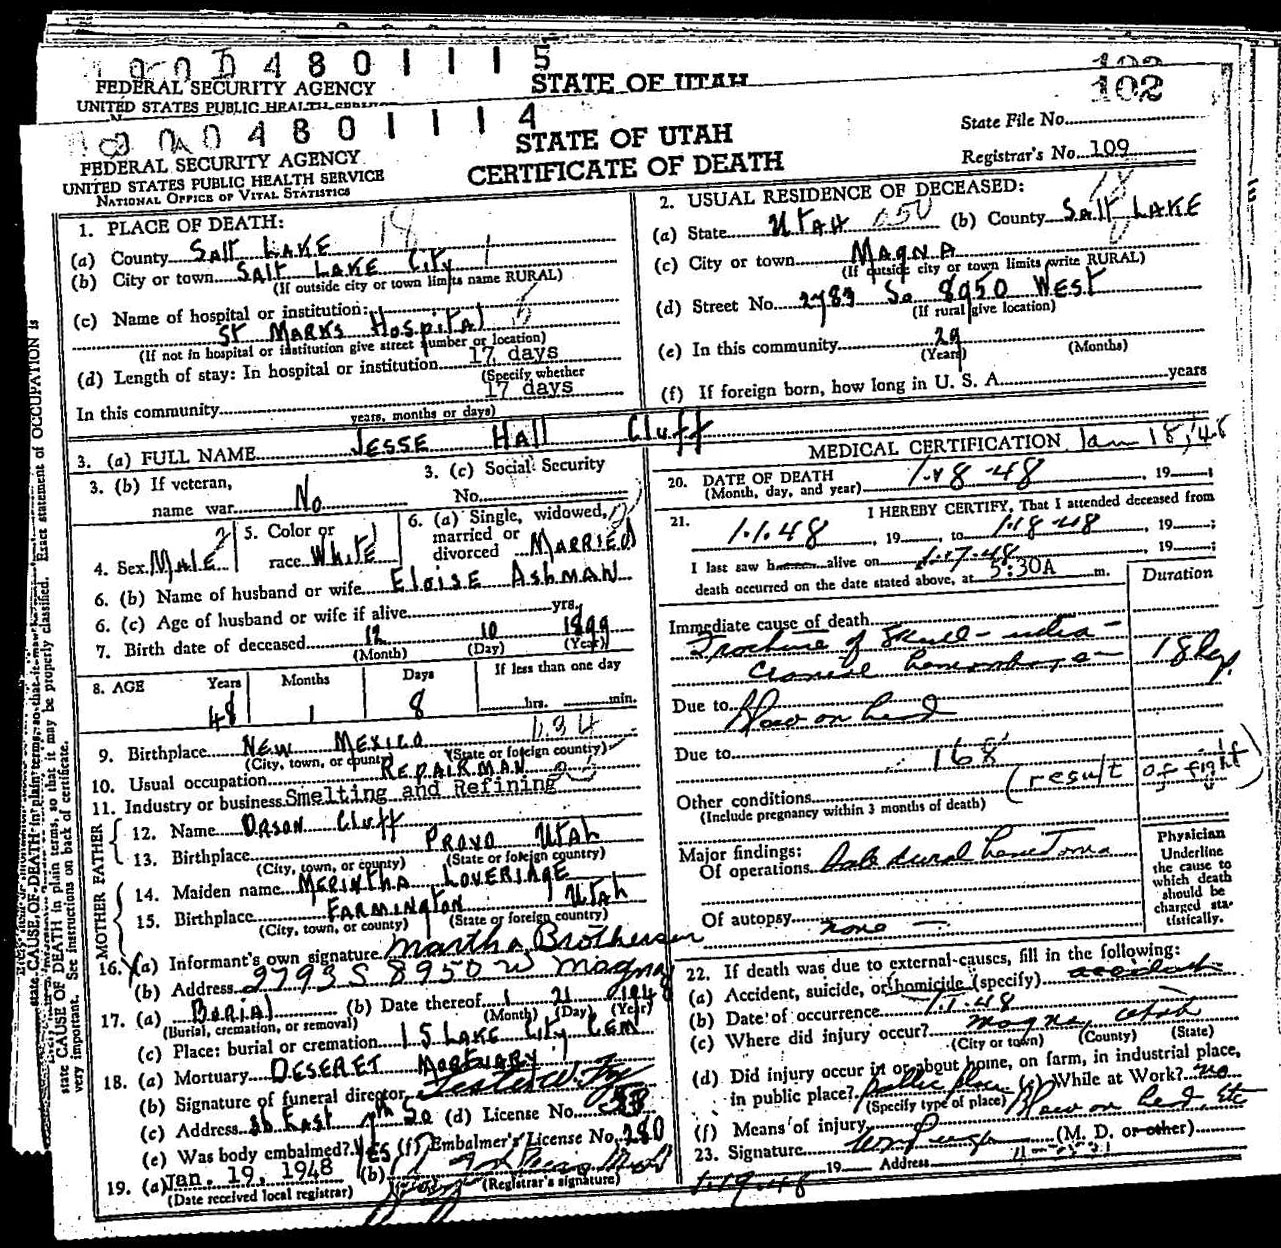 4801115
FEDERAL SECURITY AGENCY STATE OF UTAH
UNITED STATES PUBLIC HEALTH SERVICE
102
4801114
STATE OF UTAH
CERTIFICATE OF DEATH
FEDERAL SECURITY AGENCY
UNITED STATES PUBLIC HEALTH SERVICE
NATIONAL OFFICE OF VITAL STATISTICS
State File No.
Registrar's No. 109
1. PLACE OF DEATH:
(a) County SALT LAKE
(b) City or town SALT LAKE City
(If outside city or town limits name RURAL)
(c) Name of hospital or institution:
ST MARKS HOSPITAL
(If not in hospital or institution give street number or location)
(d) Length of stay: In hospital or institution 17 days
(Specify whether
In this community 17 days
years, months or days)
2. USUAL RESIDENCE OF DECEASED:
(a) State UTAH (b) County SALT LAKE
(c) City or town MAGNA
(If outside city or town limits write RURAL)
(d) Street No. 2783 So 8950 WEST
(If rural give location)
(e) In this community 29
(Years) (Months)
(f) If foreign born, how long in U. S. A. years
3. (a) FULL NAME JESSE HALL Cluff
3. (b) If veteran,
name war No
3. (c) Social Security
No.
4. Sex MALE
5. Color or
race WHITE
6. (a) Single, widowed,
married or
divorced MARRIED
6. (b) Name of husband or wife ELOISE ASHMAN
6. (c) Age of husband or wife if alive yrs.
7. Birth date of deceased 12 10 1899
(Month) (Day) (Year)
8. AGE Years Months Days If less than one day
48 1 8 hrs. min.
9. Birthplace NEW MEXICO
(City, town, or county) (State or foreign country)
10. Usual occupation REPAIRMAN
11. Industry or business Smelting and Refining
FATHER
12. Name ORSON Cluff
13. Birthplace PROVO UTAH
(City, town, or county) (State or foreign country)
MOTHER
14. Maiden name MERINTHA LOVERIDGE
15. Birthplace FARMINGTON UTAH
(City, town, or county) (State or foreign country)
16. (a) Informant's own signature Martha Brothersen
(b) Address 2793 S 8950 W Magna
17. (a) BURIAL (b) Date thereof 1 21 1948
(Burial, cremation, or removal) (Month) (Day) (Year)
(c) Place: burial or cremation S LAKE City CEM
18. (a) Mortuary DESERET MORTUARY
(b) Signature of funeral director
(c) Address 36 EAST 7th So (d) License No.
(e) Was body embalmed? YES (f) Embalmer's License No. 280
19. (a) Jan. 19, 1948 (b)
(Date received local registrar) (Registrar's signature)
MEDICAL CERTIFICATION Jan 18, 48
20. DATE OF DEATH 1-18-48, 19 ;
(Month, day, and year)
21. I HEREBY CERTIFY, That I attended deceased from
1.1.48, 19 , to 1-18-48, 19 ;
I last saw h alive on 1.17.48, 19 ;
death occurred on the date stated above, at 5:30A m.
Duration
Immediate cause of death
Fracture of Skull - intra-
cranial hemorrhage - 18 days
Due to Blow on head
Due to 168
(result of fight)
Other conditions
(Include pregnancy within 3 months of death)
Major findings:
Of operations Subdural hematoma
Of autopsy none
Physician
Underline
the cause to
which death
should be
charged sta-
tistically.
22. If death was due to external causes, fill in the following:
(a) Accident, suicide, or homicide (specify) accident
(b) Date of occurrence 1.1.48
(c) Where did injury occur? Magna, Utah
(City or town) (County) (State)
(d) Did injury occur in or about home, on farm, in industrial place,
in public place? public place (e) While at Work? no
(Specify type of place)
(f) Means of injury Blow on head, etc
23. Signature (M. D. or other)
19 Address
1-19-48
state CAUSE OF DEATH in plain terms, so that it may be properly classified. Exact statement of OCCUPATION is
very important. See instructions on back of certificate.